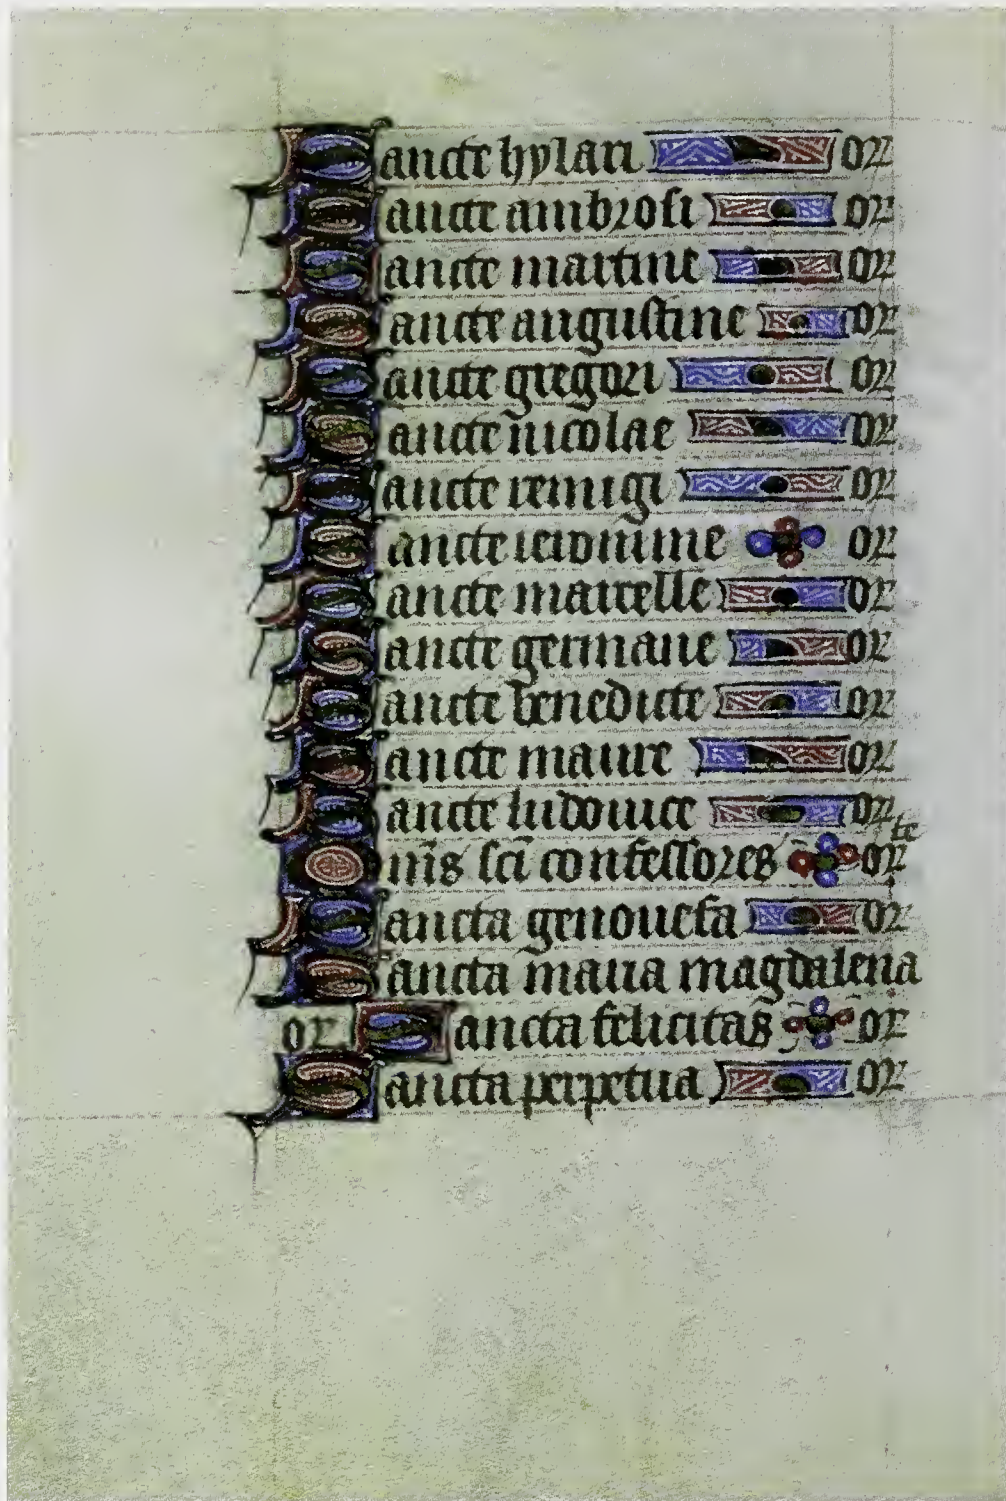 Sancte hylari or
Sancte ambrosi or
Sancte martine or
Sancte augustine or
Sancte gregori or
Sancte nicolae or
Sancte remigi or
Sancte ieronime or
Sancte marcelle or
Sancte germane or
Sancte benedicte or
Sancte maure or
Sancte ludouice or
Om̄s sc̄i confessores orte
Sancta genouefa or
Sancta maria magdalena
or Sancta felicitas or
Sancta perpetua or